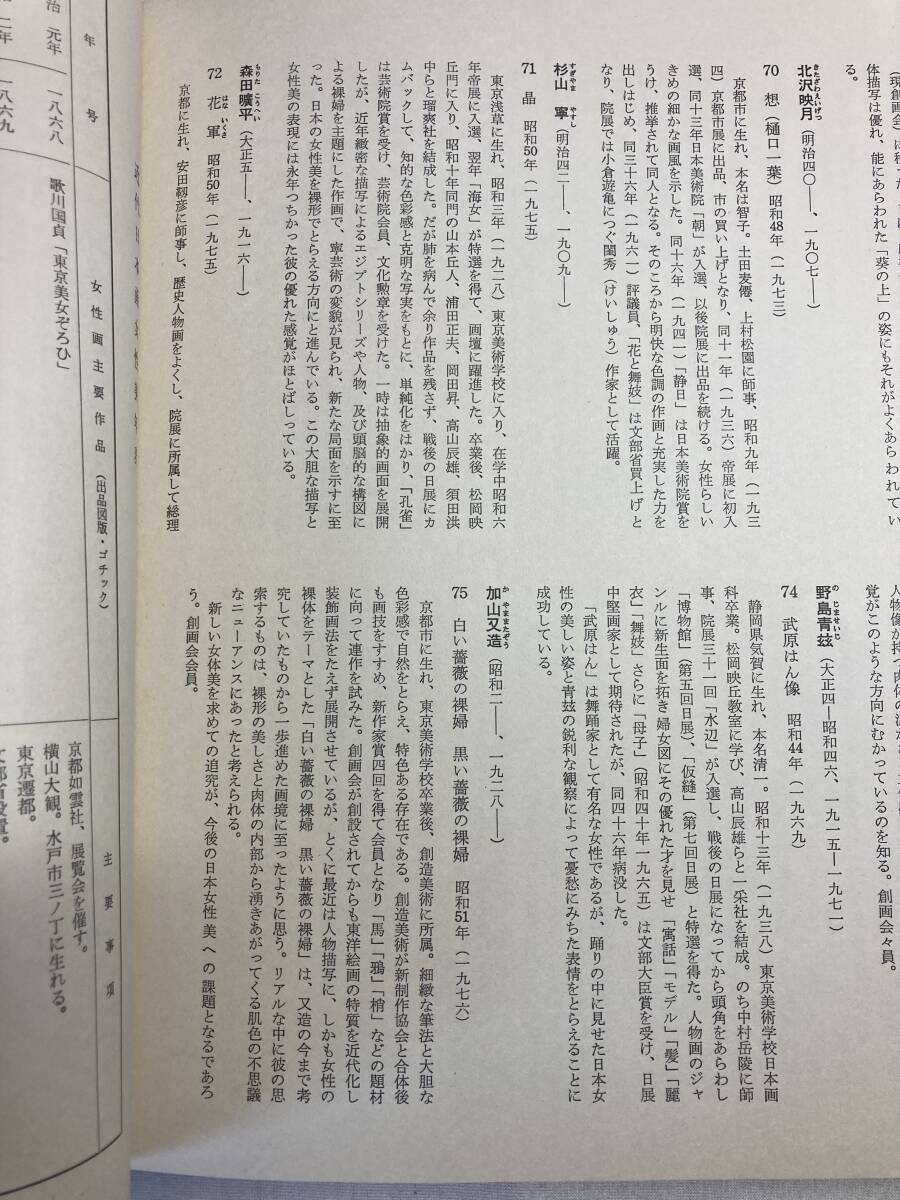 体描写は優れ、能にあらわれた「葵の上」の姿にもそれがよくあらわれてい
る。
北沢映月（明治四〇――、一九〇七――）
きたざわえいげつ
70　想（樋口一葉）昭和48年（一九七三）
京都市に生れ、本名は智子。土田麦僊、上村松園に師事、昭和九年（一九三
四）京都市展に出品、市の買い上げとなり、同十一年（一九三六）帝展に初入
選、同十三年日本美術院「朝」が入選、以後院展に出品を続ける。女性らしい
きめの細かな画風を示した。同十六年（一九四一）「静日」は日本美術院賞を
うけ、推挙されて同人となる。そのころから明快な色調の作画と充実した力を
出しはじめ、同三十六年（一九六一）評議員、「花と舞妓」は文部省買上げと
なり、院展では小倉遊亀につぐ閨秀（けいしゅう）作家として活躍。
杉山　寧（明治四二――、一九〇九――）
すぎやま　やすし
71　晶　昭和50年（一九七五）
東京浅草に生れ、昭和三年（一九二八）東京美術学校に入り、在学中昭和六
年帝展に入選、翌年「海女」が特選を得て、画壇に躍進した。卒業後、松岡映
丘門に入り、昭和十年同門の山本丘人、浦田正夫、岡田昇、高山辰雄、須田珙
中らと瑠爽社を結成した。だが肺を病んで余り作品を残さず、戦後の日展にカ
ムバックして、知的な色彩感と克明な写実をもとに、単純化をはかり、「孔雀」
は芸術院賞を受け、芸術院会員、文化勲章を受けた。一時は抽象的画面を展開
したが、近年緻密な描写によるエジプトシリーズや人物、及び頭脳的な構図に
よる裸婦を主題にした作画で、寧芸術の変貌が見られ、新たな局面を示すに至
った。日本の女性美を裸形でとらえる方向にと進んでいる。この大胆な描写と
女性美の表現には永年つちかった彼の優れた感覚がほとばしっている。
森田曠平（大正五――、一九一六――）
もりた　こうへい
72　花　軍　昭和50年（一九七五）
はな　いくさ
京都に生れ、安田靫彦に師事し、歴史人物画をよくし、院展に所属して総理
覚がこのような方向にむかっているのを知る。創画会々員。
野島青玆（大正四―昭和四六、一九一五―一九七一）
のじませいじ
74　武原はん像　昭和44年（一九六九）
静岡県気賀に生れ、本名清一。昭和十三年（一九三八）東京美術学校日本画
科卒業。松岡映丘教室に学び、高山辰雄らと一采社を結成。のち中村岳陵に師
事、院展三十一回「水辺」が入選し、戦後の日展になってから頭角をあらわし
「博物館」（第五回日展）、「仮縫」（第七回日展）と特選を得た。人物画のジャ
ンルに新生面を拓き婦女図にその優れた才を見せ「寓話」「モデル」「髪」「麗
衣」「舞妓」さらに「母子」（昭和四十年一九六五）は文部大臣賞を受け、日展
中堅画家として期待されたが、同四十六年病没した。
「武原はん」は舞踊家として有名な女性であるが、踊りの中に見せた日本女
性の美しい姿と青玆の鋭利な観察によって憂愁にみちた表情をとらえることに
成功している。
加山又造（昭和二――、一九二八――）
かやままたぞう
75　白い薔薇の裸婦　黒い薔薇の裸婦　昭和51年（一九七六）
京都市に生れ、東京美術学校卒業後、創造美術に所属。細緻な筆法と大胆な
色彩感で自然をとらえ、特色ある存在である。創造美術が新制作協会と合体後
も画技をすすめ、新作家賞四回を得て会員となり「馬」「鴉」「梢」などの題材
に向って連作を試みた。創画会が創設されてからも東洋絵画の特質を近代化し
装飾画法をたえず展開させているが、とくに最近は人物描写に、しかも女性の
裸体をテーマとした「白い薔薇の裸婦　黒い薔薇の裸婦」は、又造の今まで考
究していたものから一歩進めた画境に至ったように思う。リアルな中に彼の思
索するものは、裸形の美しさと肉体の内部から湧きあがってくる肌色の不思議
なニューアンスにあったと考えられる。
新しい女体美を求めての追究が、今後の日本女性美への課題となるであろ
う。創画会会員。
年　号
女性画主要作品（出品図版・ゴチック）
主要事項
治元年　一八六八
歌川国貞「東京美女ぞろひ」
京都如雲社、展覧会を催す。
横山大観。水戸市三ノ丁に生れる。
東京遷都。
二年　一八六九